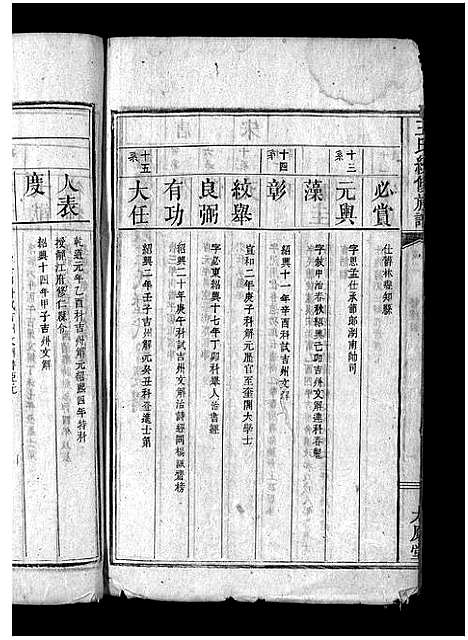 王氏
必賞
仕醬林桑知縣
十三
系
元興
字恩孟仕承節郎湖南帥司
藻
字敦甫治春秋紹興己卯吉州文解連科春魁
十四
系
彰
紹興十一年辛酉科試吉州文解
紋舉
宣和二年庚子科解元歷官至奎閣大學士
良弼
字必東紹興十七年丁卯科舉人治書經
有功
紹興二十年庚午科試吉州文解治詩經同楊誠齋榜
十五
系
大任
紹興二年壬子吉州解元癸丑科登進士第
人表
乾道元年乙酉科吉州解元紹熙四年特科
授靜江府修仁縣令
度
紹興十四年甲子吉州文解